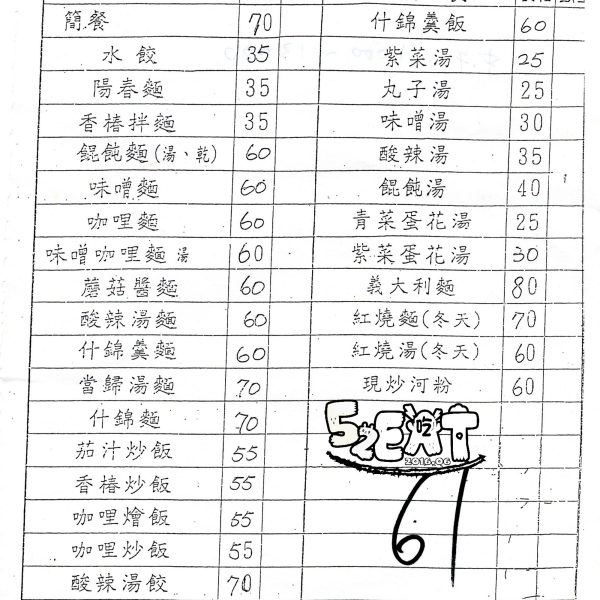 簡餐 70
水餃 35
陽春麵 35
香椿拌麵 35
餛飩麵(湯、乾) 60
味噌麵 60
咖哩麵 60
味噌咖哩麵 湯 60
蘑菇醬麵 60
酸辣湯麵 60
什錦羹麵 60
當歸湯麵 70
什錦麵 70
茄汁炒飯 55
香椿炒飯 55
咖哩燴飯 55
咖哩炒飯 55
酸辣湯餃 70
什錦羹飯 60
紫菜湯 25
丸子湯 25
味噌湯 30
酸辣湯 35
餛飩湯 40
青菜蛋花湯 25
紫菜蛋花湯 30
義大利麵 80
紅燒麵(冬天) 70
紅燒湯(冬天) 60
現炒河粉 60
52EAT 吃
2016.06
61